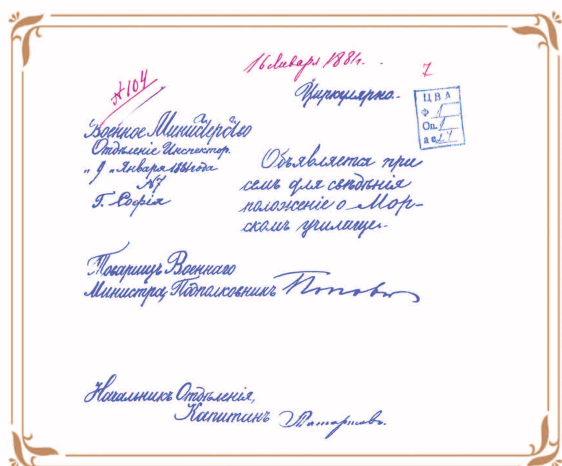 16 Января 1881г.
7
№104
Циркулярно.
ЦВА
Ф 1
Оп. 1
а е. 27
Военное Министерство
Отдѣленіе Инспектор.
„ 9 „ Января 1881 года
№7
Г. Софія
Объявляется при
семъ для свѣдѣнія
положеніе о Мор-
скомъ училище.
Товарищъ Военнаго
Министра, Подполковникъ Поповъ
Начальникъ Отдѣленія,
Капитанъ